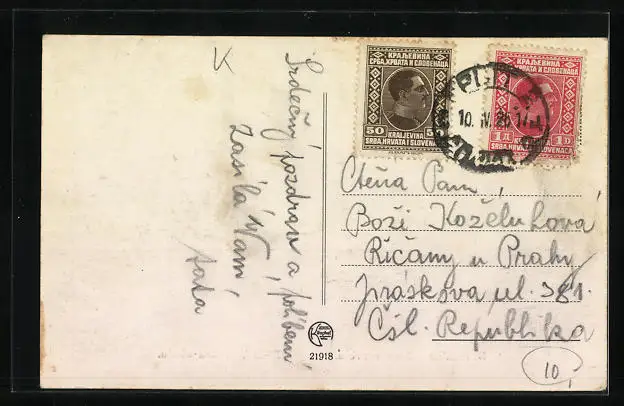 V
Srdečný pozdrav a políbení
zasílá Vám
táta
КРАЉЕВИНА
СРБА, ХРВАТА И СЛОВЕНАЦА
50
50
KRALJEVINA
SRBA, HRVATA I SLOVENACA
КРАЉЕВИНА
СРБА, ХРВАТА И СЛОВЕНАЦА
1Д
1D
KRALJEVINA
SRBA, HRVATA I SLOVENACA
10. IV. 26. 17
Ctěná Paní,
Boži Koželuhová
Říčany u Prahy
Jiráskova ul. 381.
Čsl. Republika
21918
10,